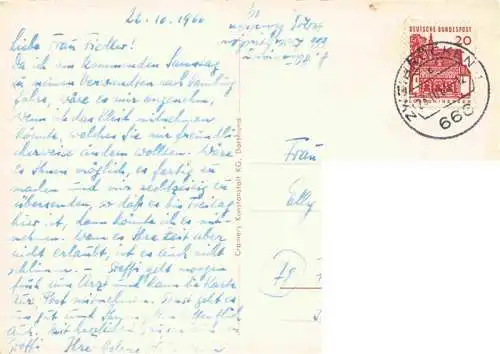 26.10.1966
Liebe Frau Fiedler!
Da ich am kommenden Samstag
zu meinen Verwandten nach Homburg
fahre, wäre es mir angenehm,
wenn ich das Kleid mitnehmen
könnte, welches Sie mir freundli-
cherweise ändern wollten. Wäre
es Ihnen möglich, es fertig zu
machen und mir rechtzeitig zu
übersenden, so daß es bis Freitag
hier ist, dann könnte ich es mit-
nehmen. Wenn es Ihre Zeit aber
nicht erlaubt, ist es auch nicht
schlimm. – Steffi geht morgen
früh zum Arzt und kann die Karte
zur Post mitnehmen. Sonst geht es
uns gut und Ihnen hoffentlich
auch. Mit herzlichen Grüßen
Steffi Ihre
Cramers Kunstanstalt KG, Dortmund
DEUTSCHE BUNDESPOST
20
ZWEIBRÜCKEN 1
666
Frau
Elly